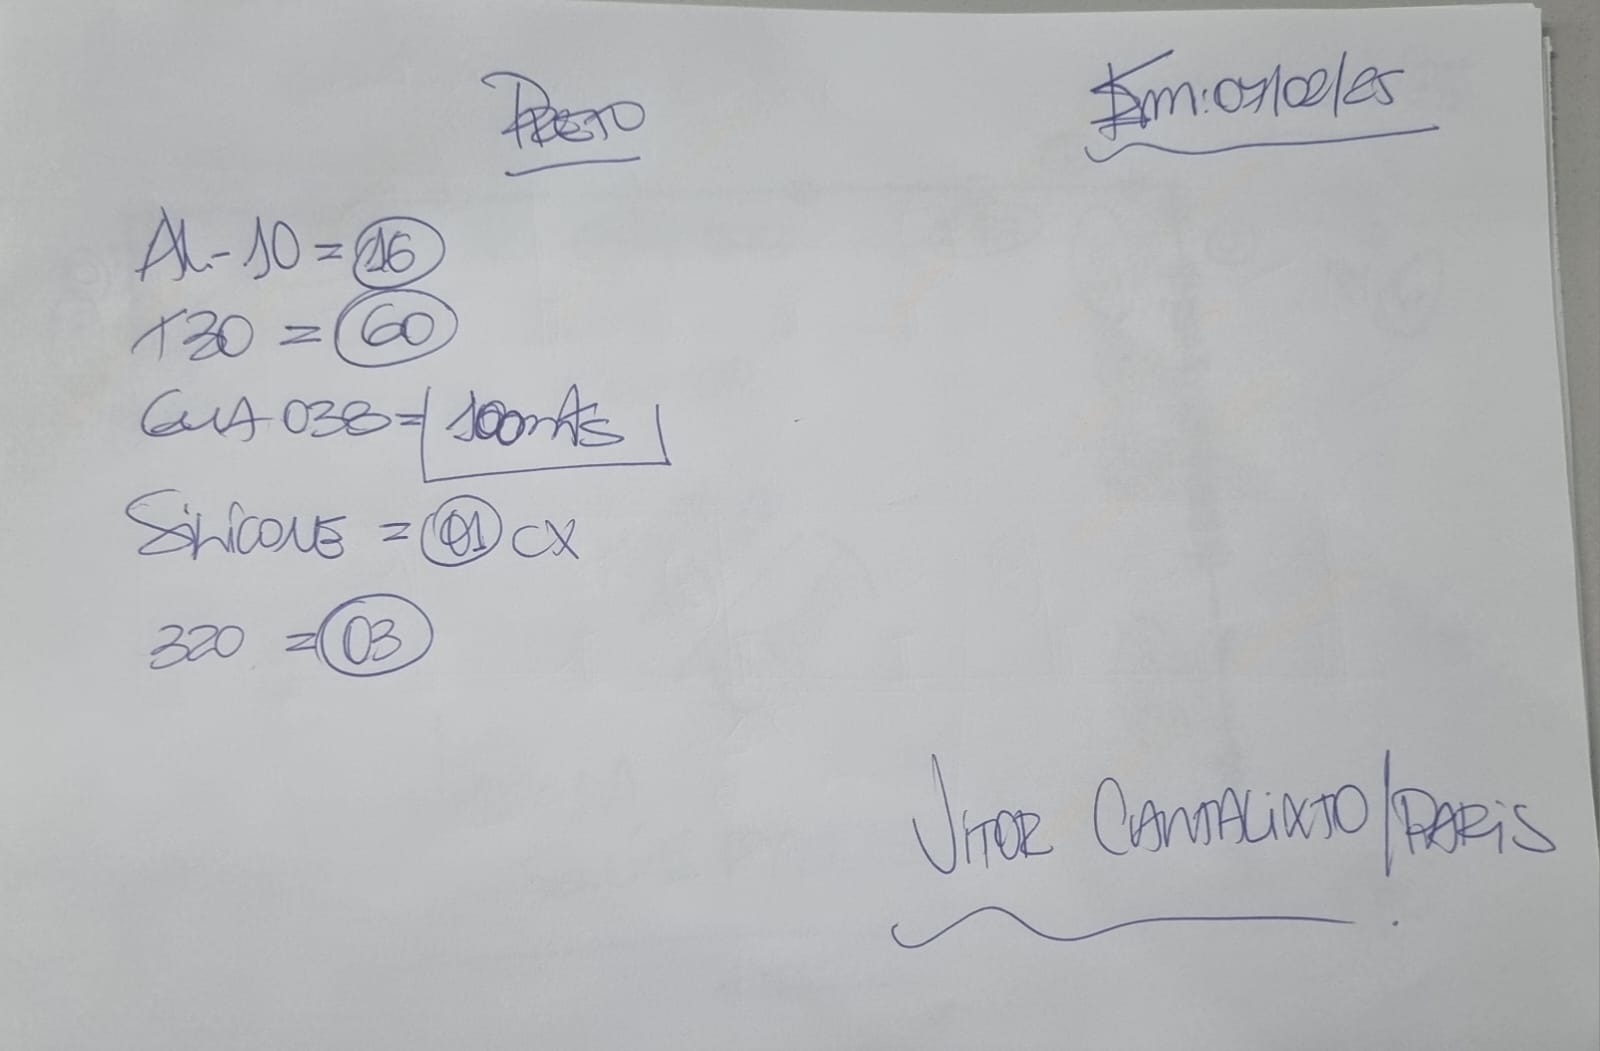 PRETO
Em: 07/02/25
AL-10 = 16
T30 = 60
GUA 038 = 100mts
SiLiCONE = 01 CX
320 = 03
VITOR CANTALiXTO/PARiS